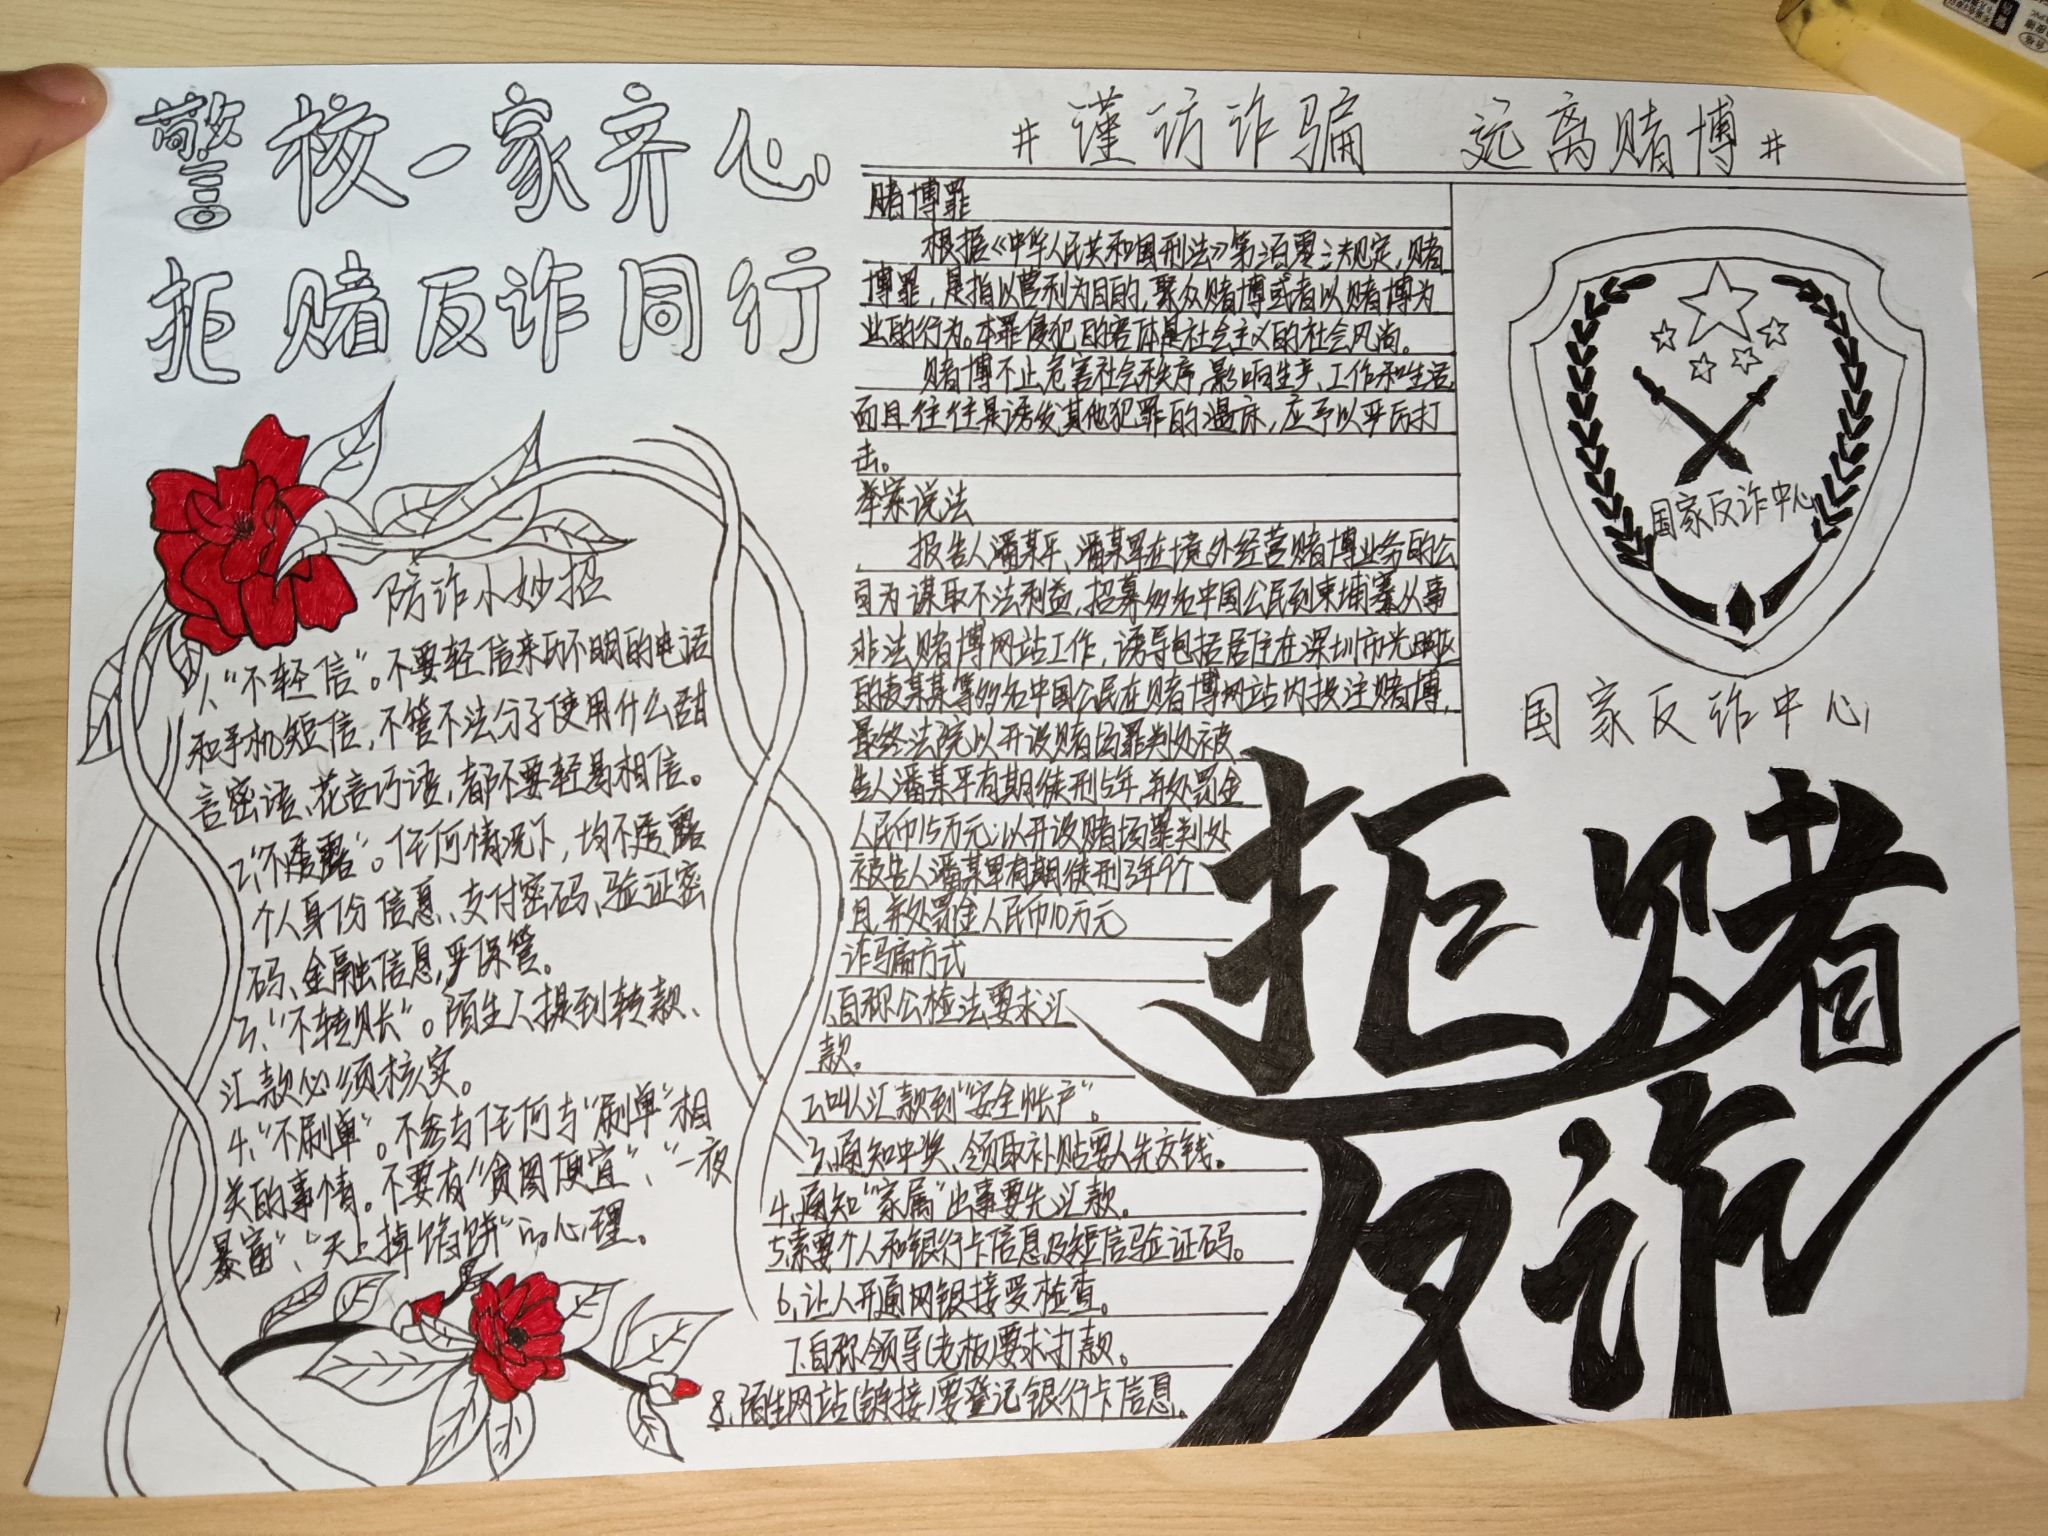 警校一家齐心
拒赌反诈同行
#谨访诈骗 远离赌博#
防诈小妙招
1、“不轻信”。不要轻信来历不明的电话
和手机短信,不管不法分子使用什么甜
言密语、花言巧语,都不要轻易相信。
2、“不透露”。任何情况下,均不透露
个人身份信息、支付密码、验证密
码、金融信息,严保管。
3、“不转账”。陌生人提到转款、
汇款必须核实。
4、“不刷单”。不参与任何与“刷单”相
关的事情。不要有“贪图便宜”、“一夜
暴富”、“天上掉馅饼”的心理。
赌博罪
根据《中华人民共和国刑法》第三百零三规定,赌
博罪,是指以营利为目的,聚众赌博或者以赌博为
业的行为。本罪侵犯的客体是社会主义的社会风尚。
赌博不止危害社会秩序,影响生产、工作和生活,
而且往往是诱发其他犯罪的温床,应予以严厉打
击。
举案说法
报告人潘某平、潘某军在境外经营赌博业务的公
司为谋取不法利益,招募多名中国公民到柬埔寨从事
非法赌博网站工作,诱导包括居住在深圳市光明区
的袁某某等多名中国公民在赌博网站内投注赌博,
最终法院以开设赌场罪判处被
告人潘某平有期徒刑5年,并处罚金
人民币15万元;以开设赌场罪判处
被告人潘某军有期徒刑3年9个
月,并处罚金人民币10万元
诈骗方式
1、自称公检法要求汇
款。
2、叫人汇款到“安全帐户”。
3、通知中奖、领取补贴要人先交钱。
4、通知“家属”出事要先汇款。
5、索要个人和银行卡信息及短信验证码。
6、让人开通网银接受检查。
7、自称领导(老板)要求打款。
8、陌生网站(链接)要登记银行卡信息。
国家反诈中心
国家反诈中心
拒赌
反诈